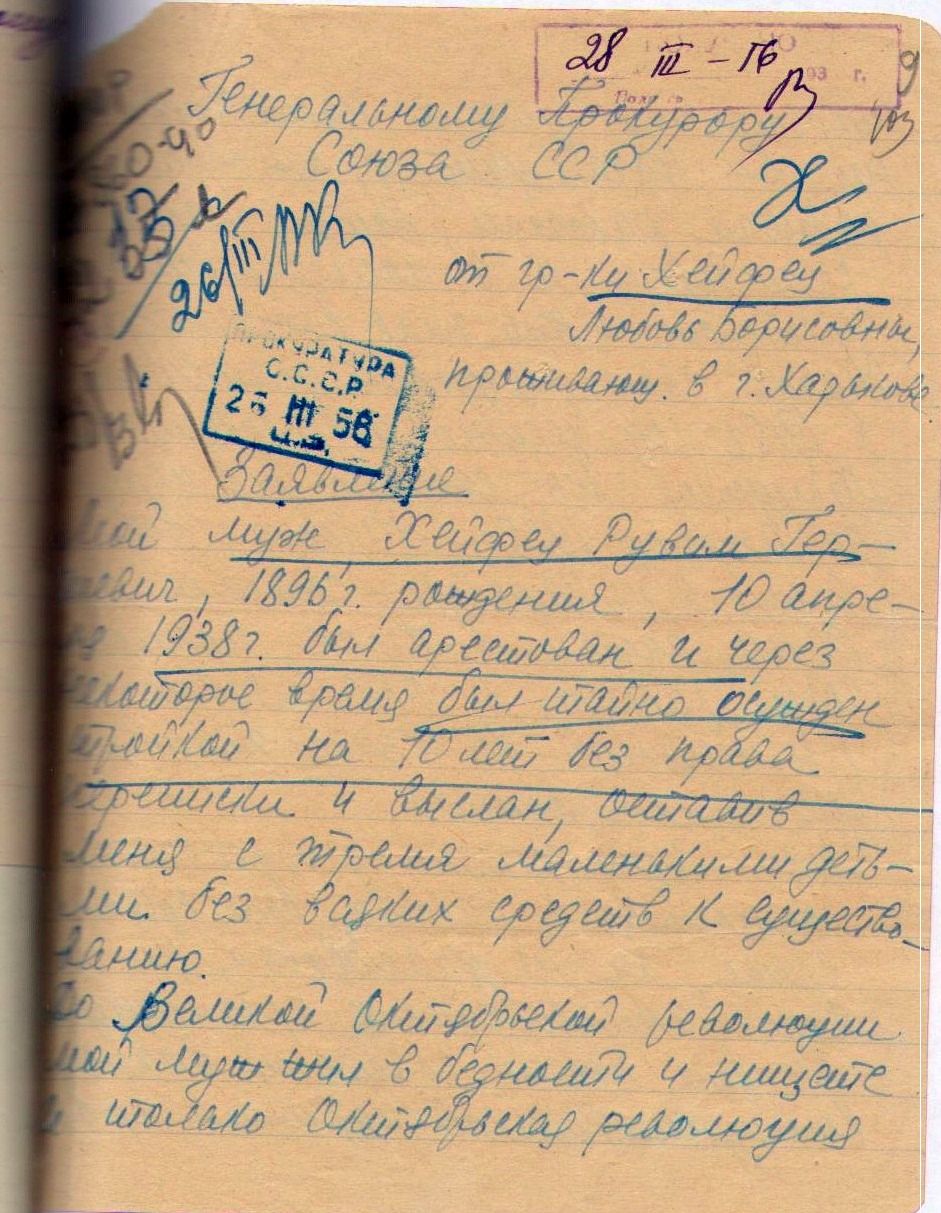 28 III - 56
Генеральному Прокурору
Союза ССР
26/III
от гр-ки Хейфец
Любовь Борисовны,
проживающ. в г. Харькове
ПРОКУРАТУРА
С.С.С.Р.
26 III 56
Заявление
Мой муж, Хейфец Рувим Гер-
евич, 1896 г. рождения, 10 апре-
ля 1938 г. был арестован и через
некоторое время был тайно осужден
тройкой на 10 лет без права
переписки и выслан, оставив
меня с тремя маленькими деть-
ми без всяких средств к существо-
ванию.
До Великой Октябрьской революции
мой муж жил в бедности и нищете
и только Октябрьская революция